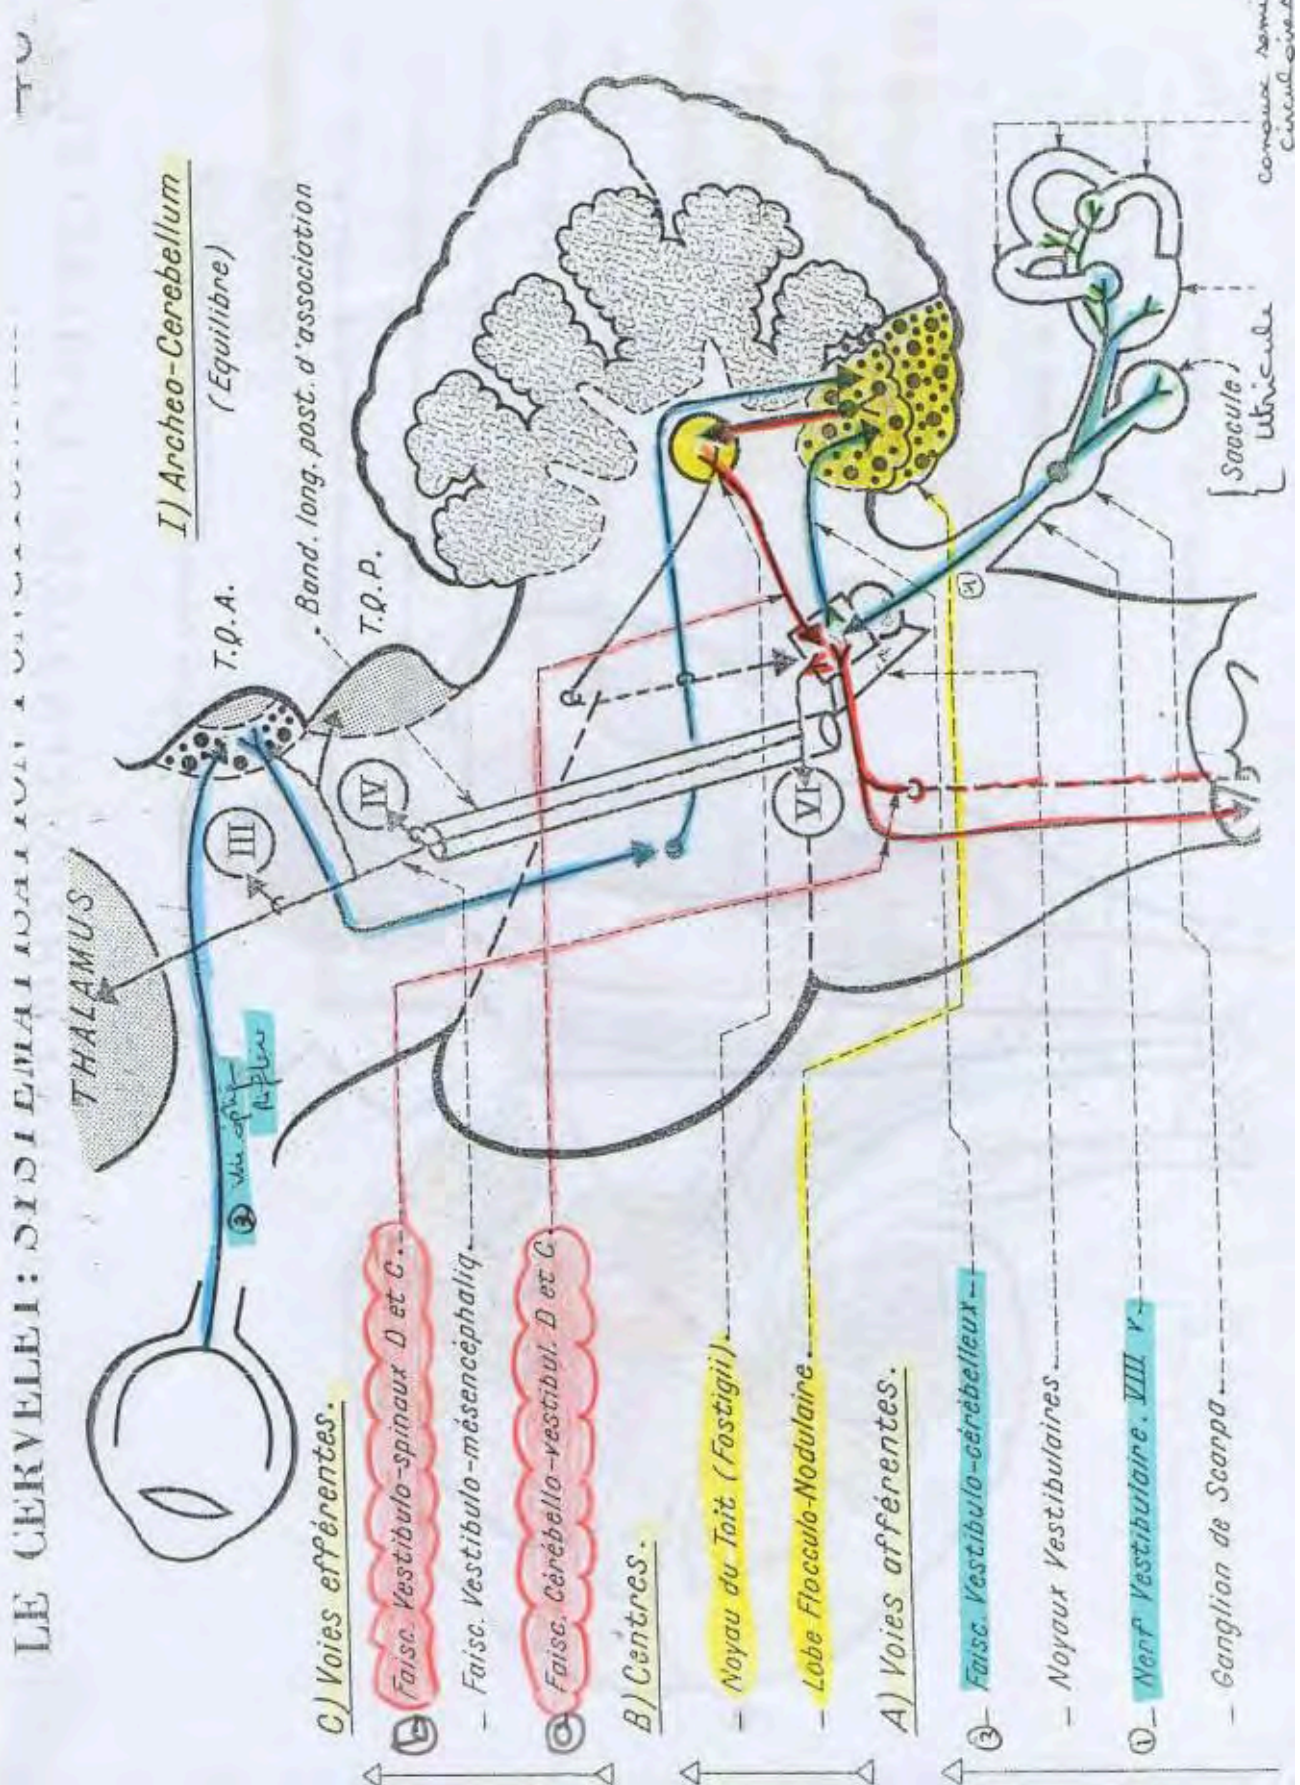 LE CERVELET : SYSTEMATISATION
I) Archeo-Cerebellum
(Equilibre)
THALAMUS
T.Q.A.
Band. long. post. d'association
T.Q.P.
III
IV
VI
C) Voies efférentes.
Faisc. Vestibulo-spinaux D et C.
- Faisc. Vestibulo-mésencéphaliq.
Faisc. Cérébello-vestibul. D et C.
B) Centres.
- Noyau du Toit (Fostigii)
- Lobe Flocculo-Nodulaire
A) Voies afférentes.
② - Faisc. Vestibulo-cérébelleux
- Noyaux Vestibulaires
① - Nerf Vestibulaire. VIII V.
- Ganglion de Scarpa
Saccule,
Utricule
canaux semi
circulaires